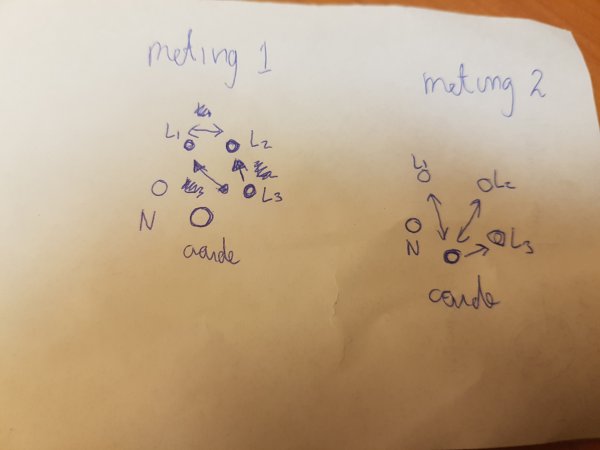 meting 1
L1 L2
L3
N
aarde
meting 2
L1
L2
N
L3
aarde